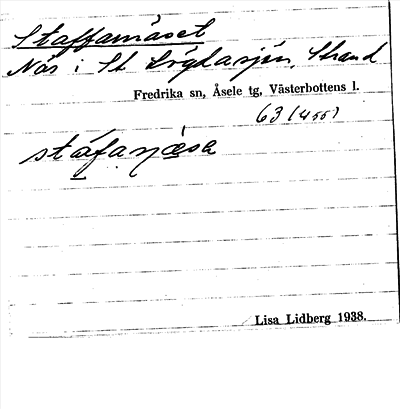 Staffamäset
Näs i St. Lögdasjön, Strand
Fredrika sn, Åsele tg, Västerbottens l.
63 (4551)
stáfanæsə
Lisa Lidberg 1938.